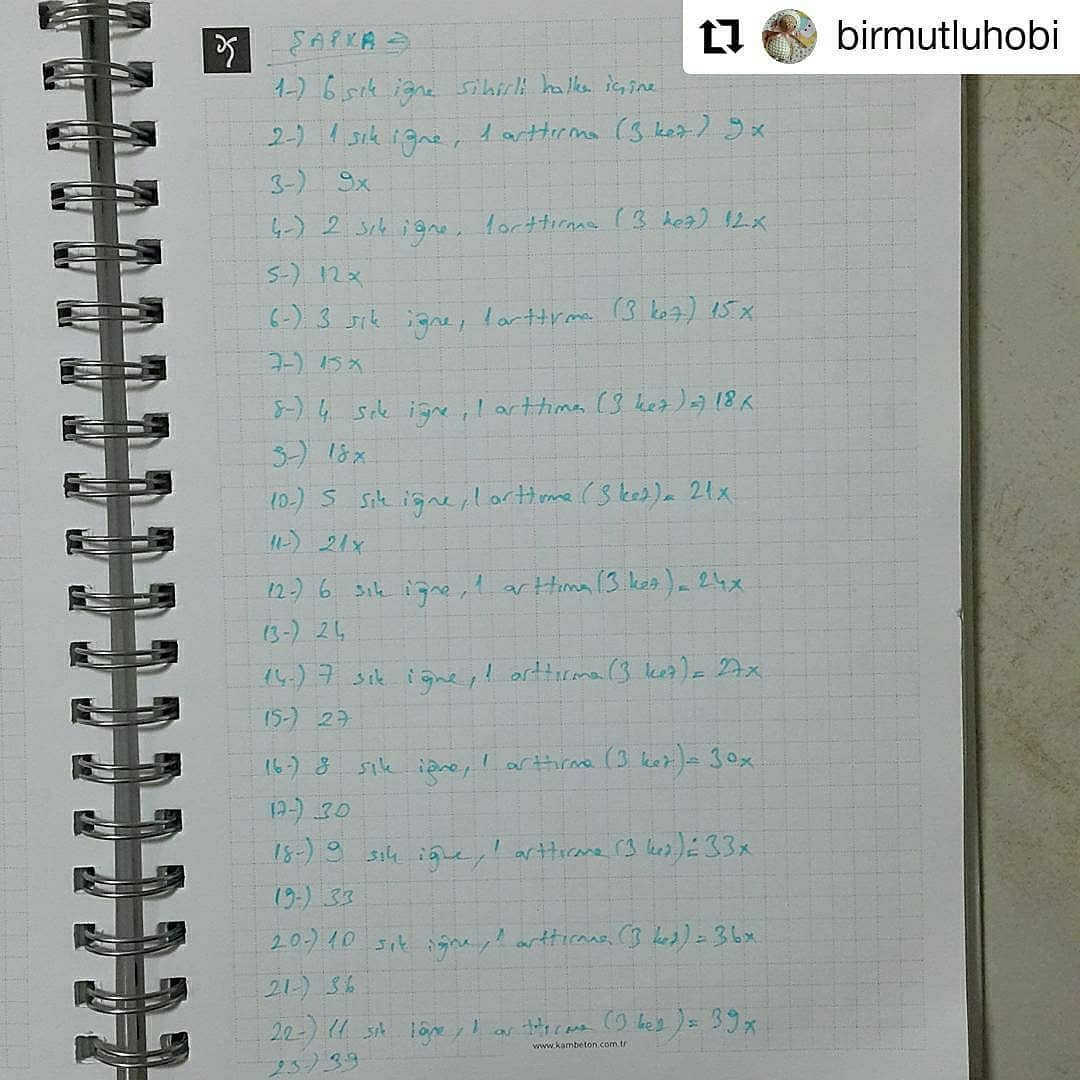 birmutluhobi
ŞAPKA =>
1-) 6 sık iğne sihirli halka içine
2-) 1 sık iğne, 1 arttırma (3 kez) 9x
3-) 9x
4-) 2 sık iğne, 1 arttırma (3 kez) 12x
5-) 12x
6-) 3 sık iğne, 1 arttırma (3 kez) 15x
7-) 15x
8-) 4 sık iğne, 1 arttırma (3 kez) => 18x
9-) 18x
10-) 5 sık iğne, 1 arttırma (3 kez) = 21x
11-) 21x
12-) 6 sık iğne, 1 arttırma (3 kez) = 24x
13-) 24
14-) 7 sık iğne, 1 arttırma (3 kez) = 27x
15-) 27
16-) 8 sık iğne, 1 arttırma (3 kez) = 30x
17-) 30
18-) 9 sık iğne, 1 arttırma (3 kez) = 33x
19-) 33
20-) 10 sık iğne, 1 arttırma (3 kez) = 36x
21-) 36
22-) 11 sık iğne, 1 arttırma (3 kez) = 39x
www.kambeton.com.tr
23-) 39